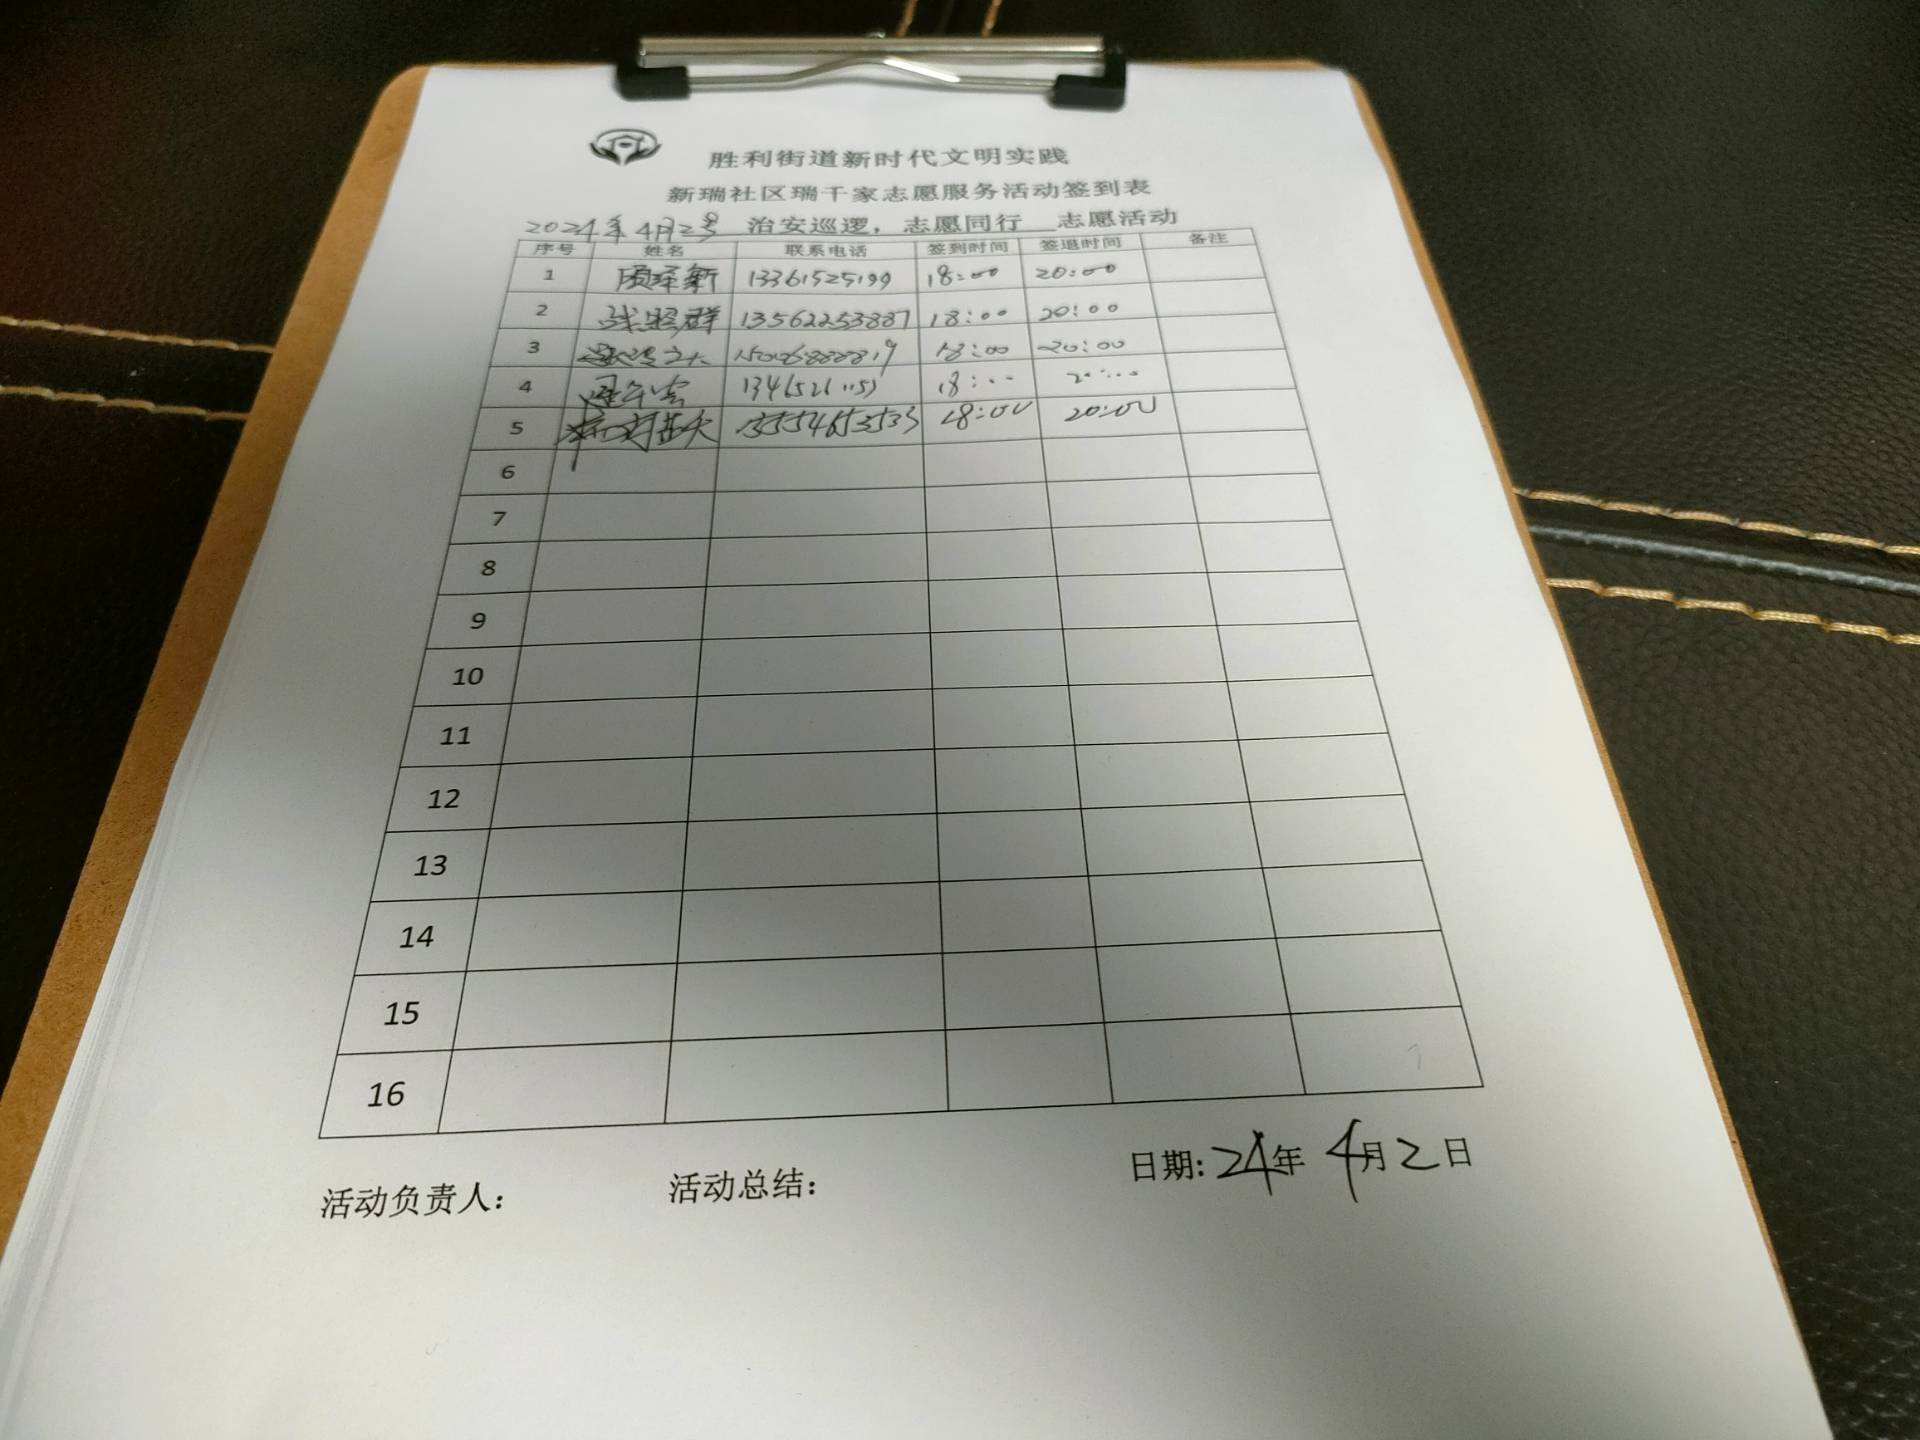 胜利街道新时代文明实践
新瑞社区瑞千家志愿服务活动签到表
2024年4月2号 治安巡逻，志愿同行 志愿活动
序号 姓名 联系电话 签到时间 签退时间 备注
1 新 13361525199 18:00 20:00
2 张照群 13562253887 18:00 20:00
3 18:00 20:00
4 18:00 20:00
5 18:00 20:00
6
7
8
9
10
11
12
13
14
15
16
活动负责人： 活动总结： 日期：24年4月2日